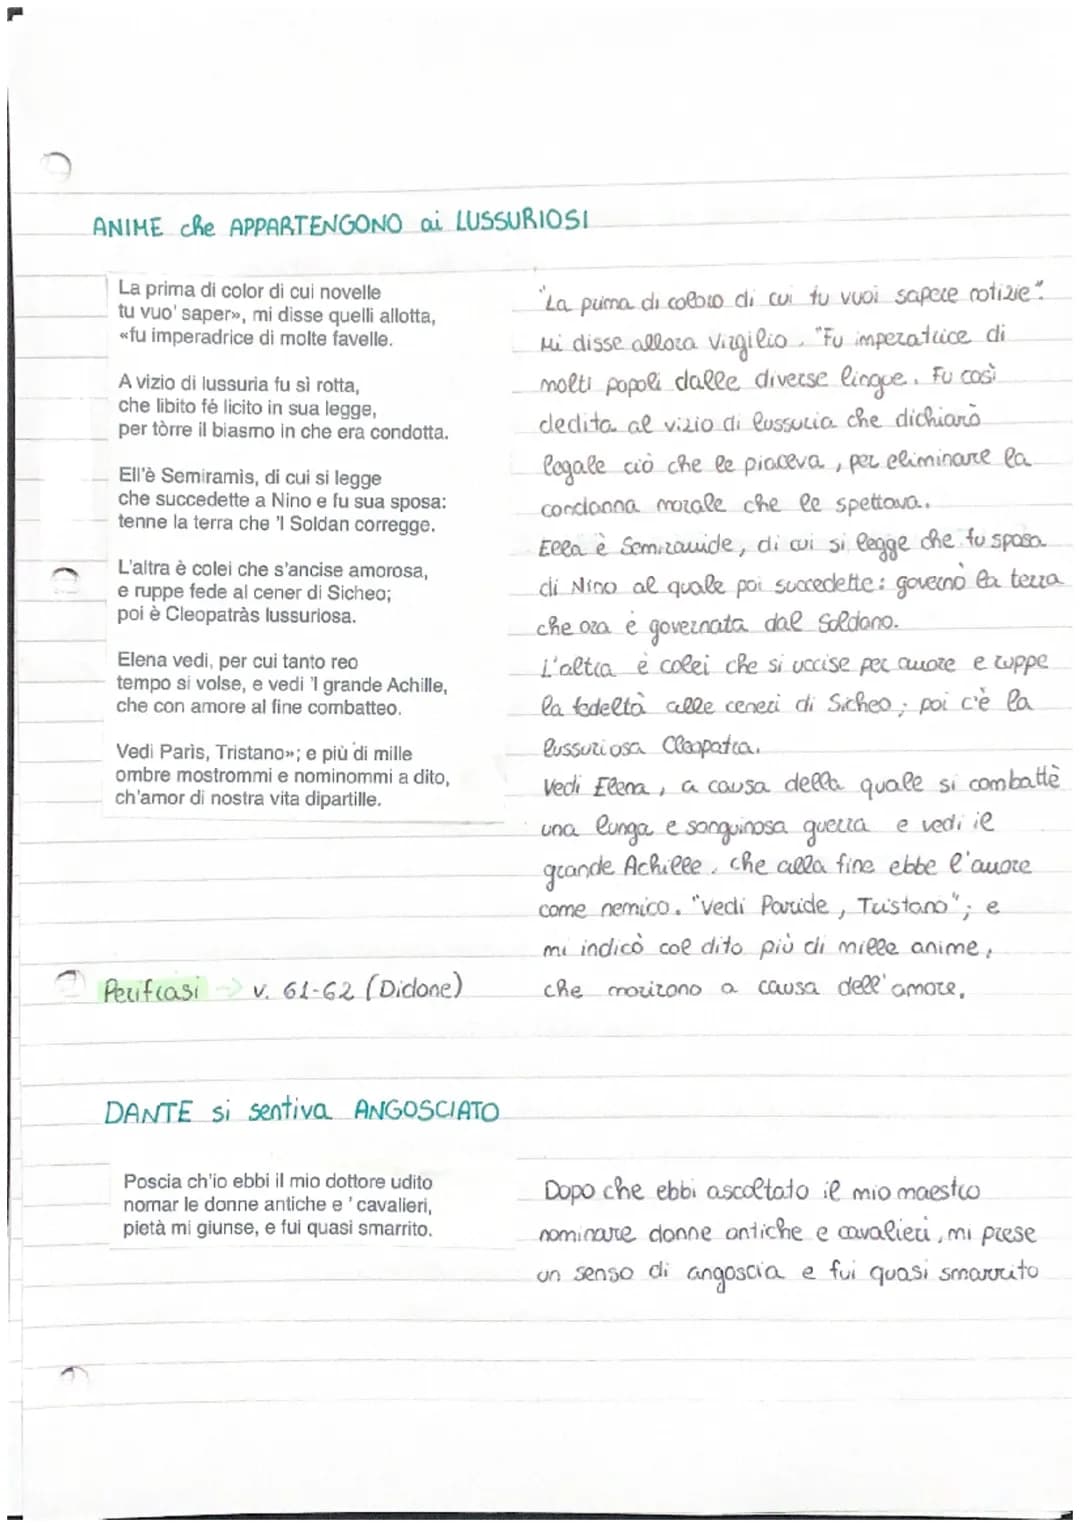 ANIME che APPARTENGONO ai LUSSURIOSI
La prima di color di cui novelle
tu vuo' saper», mi disse quelli allotta,
«fu imperadrice di molte favelle.
A vizio di lussuria fu sì rotta,
che libito fé licito in sua legge,
per tòrre il biasmo in che era condotta.
Ell'è Semiramìs, di cui si legge
che succedette a Nino e fu sua sposa:
tenne la terra che 'l Soldan corregge.
L'altra è colei che s'ancise amorosa,
e ruppe fede al cener di Sicheo;
poi è Cleopatràs lussuriosa.
Elena vedi, per cui tanto reo
tempo si volse, e vedi 'l grande Achille,
che con amore al fine combatteo.
Vedi Parìs, Tristano»; e più di mille
ombre mostrommi e nominommi a dito,
ch'amor di nostra vita dipartille.
"La prima di coloro di cui tu vuoi sapere notizie".
Mi disse allora Virgilio. "Fu imperatrice di
molti popoli dalle diverse lingue. Fu così
dedita al vizio di lussuria che dichiarò
legale ciò che le piaceva, per eliminare la
condanna morale che le spettava.
Ella è Semiramide, di cui si legge che fu sposa
di Nino al quale poi succedette: governò la terra
che ora è governata dal Soldano.
L'altra è colei che si uccise per amore e ruppe
la fedeltà alle ceneri di Sicheo; poi c'è la
lussuriosa Cleopatra.
Vedi Elena, a causa della quale si combattè
una lunga e sanguinosa guerra e vedi il
grande Achille, che alla fine ebbe l'amore
come nemico. "Vedi Paride, Tristano"; e
mi indicò col dito più di mille anime,
che morirono a causa dell'amore.
Perifrasi -> v. 61-62 (Didone)
DANTE si sentiva ANGOSCIATO
Poscia ch'io ebbi il mio dottore udito
nomar le donne antiche e ' cavalieri,
pietà mi giunse, e fui quasi smarrito.
Dopo che ebbi ascoltato il mio maestro
nominare donne antiche e cavalieri, mi prese
un senso di angoscia e fui quasi smarrito